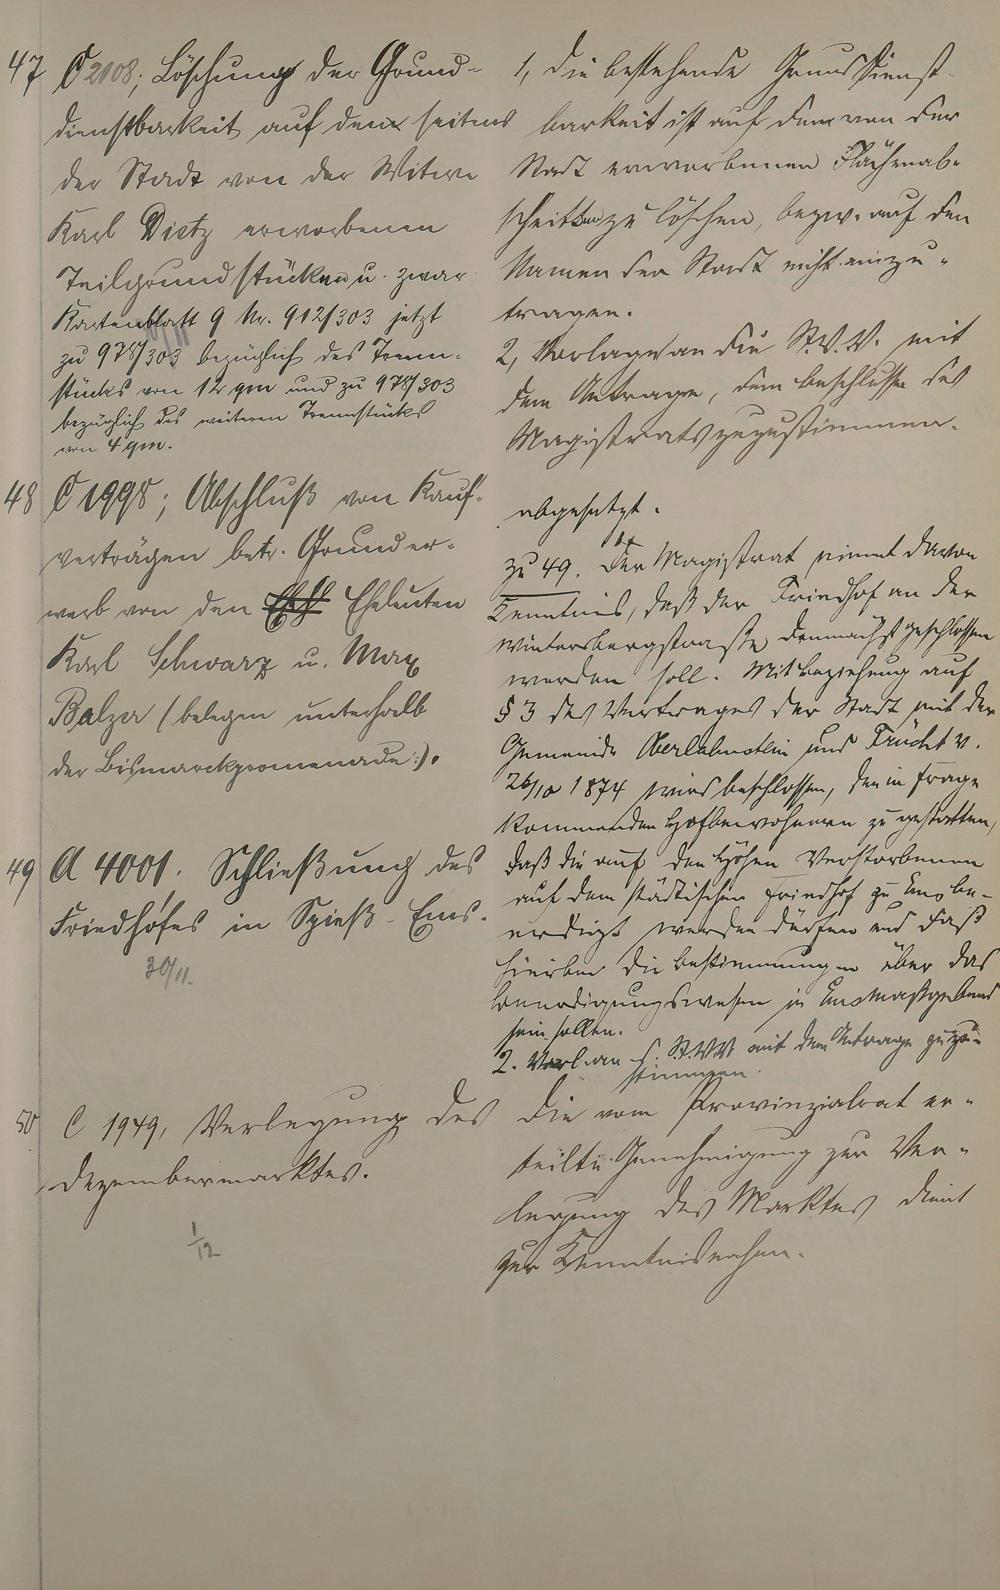 47 C 2108; Löschung der Grund-
dienstbarkeit auf den seitens
der Stadt von der Witwe
Karl Dietz erworbenen
Teilgrundstücken u. zwar
Kartenblatt 9 Nr. 912/303 jetzt
zu 978/303 bezüglich des Trenn-
stücks von 12 qm und zu 978/303
bezüglich des weiteren Trennstücks
von 4 qm.
1, Die bestehende Grunddienst-
barkeit ist auf dem von der
Stadt erworbenen Flächenab-
schnitten zu löschen, bezw. auf den
Namen der Stadt nicht einzu-
tragen.
2, Vorlage an die St.V.V. mit
dem Antrage, dem Beschlusse des
Magistrats zuzustimmen.
48 C 1998; Abschluß von Kauf-
verträgen betr. Grunder-
werb von den Eheleuten
Karl Schwarz u. Max
Balzer (belegen unterhalb
der Bismarckpromenade:).
abgesetzt.
49 A 4001. Schließung des
Friedhofes in Spieß-Ems.
30/11.
zu 49. Der Magistrat nimmt davon
Kenntnis, daß der Friedhof an der
Wintersbergstraße demnächst geschlossen
werden soll. Mit Beziehung auf
§ 3 des Vertrages der Stadt mit der
Gemeinde Oberlahnstein und Frücht v.
26/10 1874 wird beschlossen, den in Frage
kommenden Hofbewohnern zu gestatten,
daß die auf den Höfen Verstorbenen
auf dem städtischen Friedhof zu Ems be-
erdigt werden dürfen und daß
hierbei die Bestimmungen über das
Beerdigungswesen in Ems maßgebend
sein sollen.
2. Vorl. an d. St.V.V. mit dem Antrage zuzu-
stimmen.
50 C 1949, Verlegung des
Dezembermarktes.
1/12
Die vom Provinzialrat er-
teilte Genehmigung zur Ver-
legung des Marktes dient
zur Kenntnisnahme.